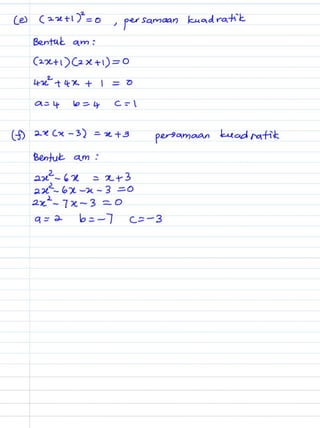 (e) (2x+1)²=0 , persamaan kuadratik
Bentuk am :
(2x+1)(2x+1)=0
4x²+4x + 1 = 0
a=4 b=4 c=1
(f) 2x(x-3) = x+3 persamaan kuadratik
Bentuk am :
2x²-6x = x+3
2x²-6x-x-3 =0
2x²-7x-3 =0
a=2 b=-7 c=-3